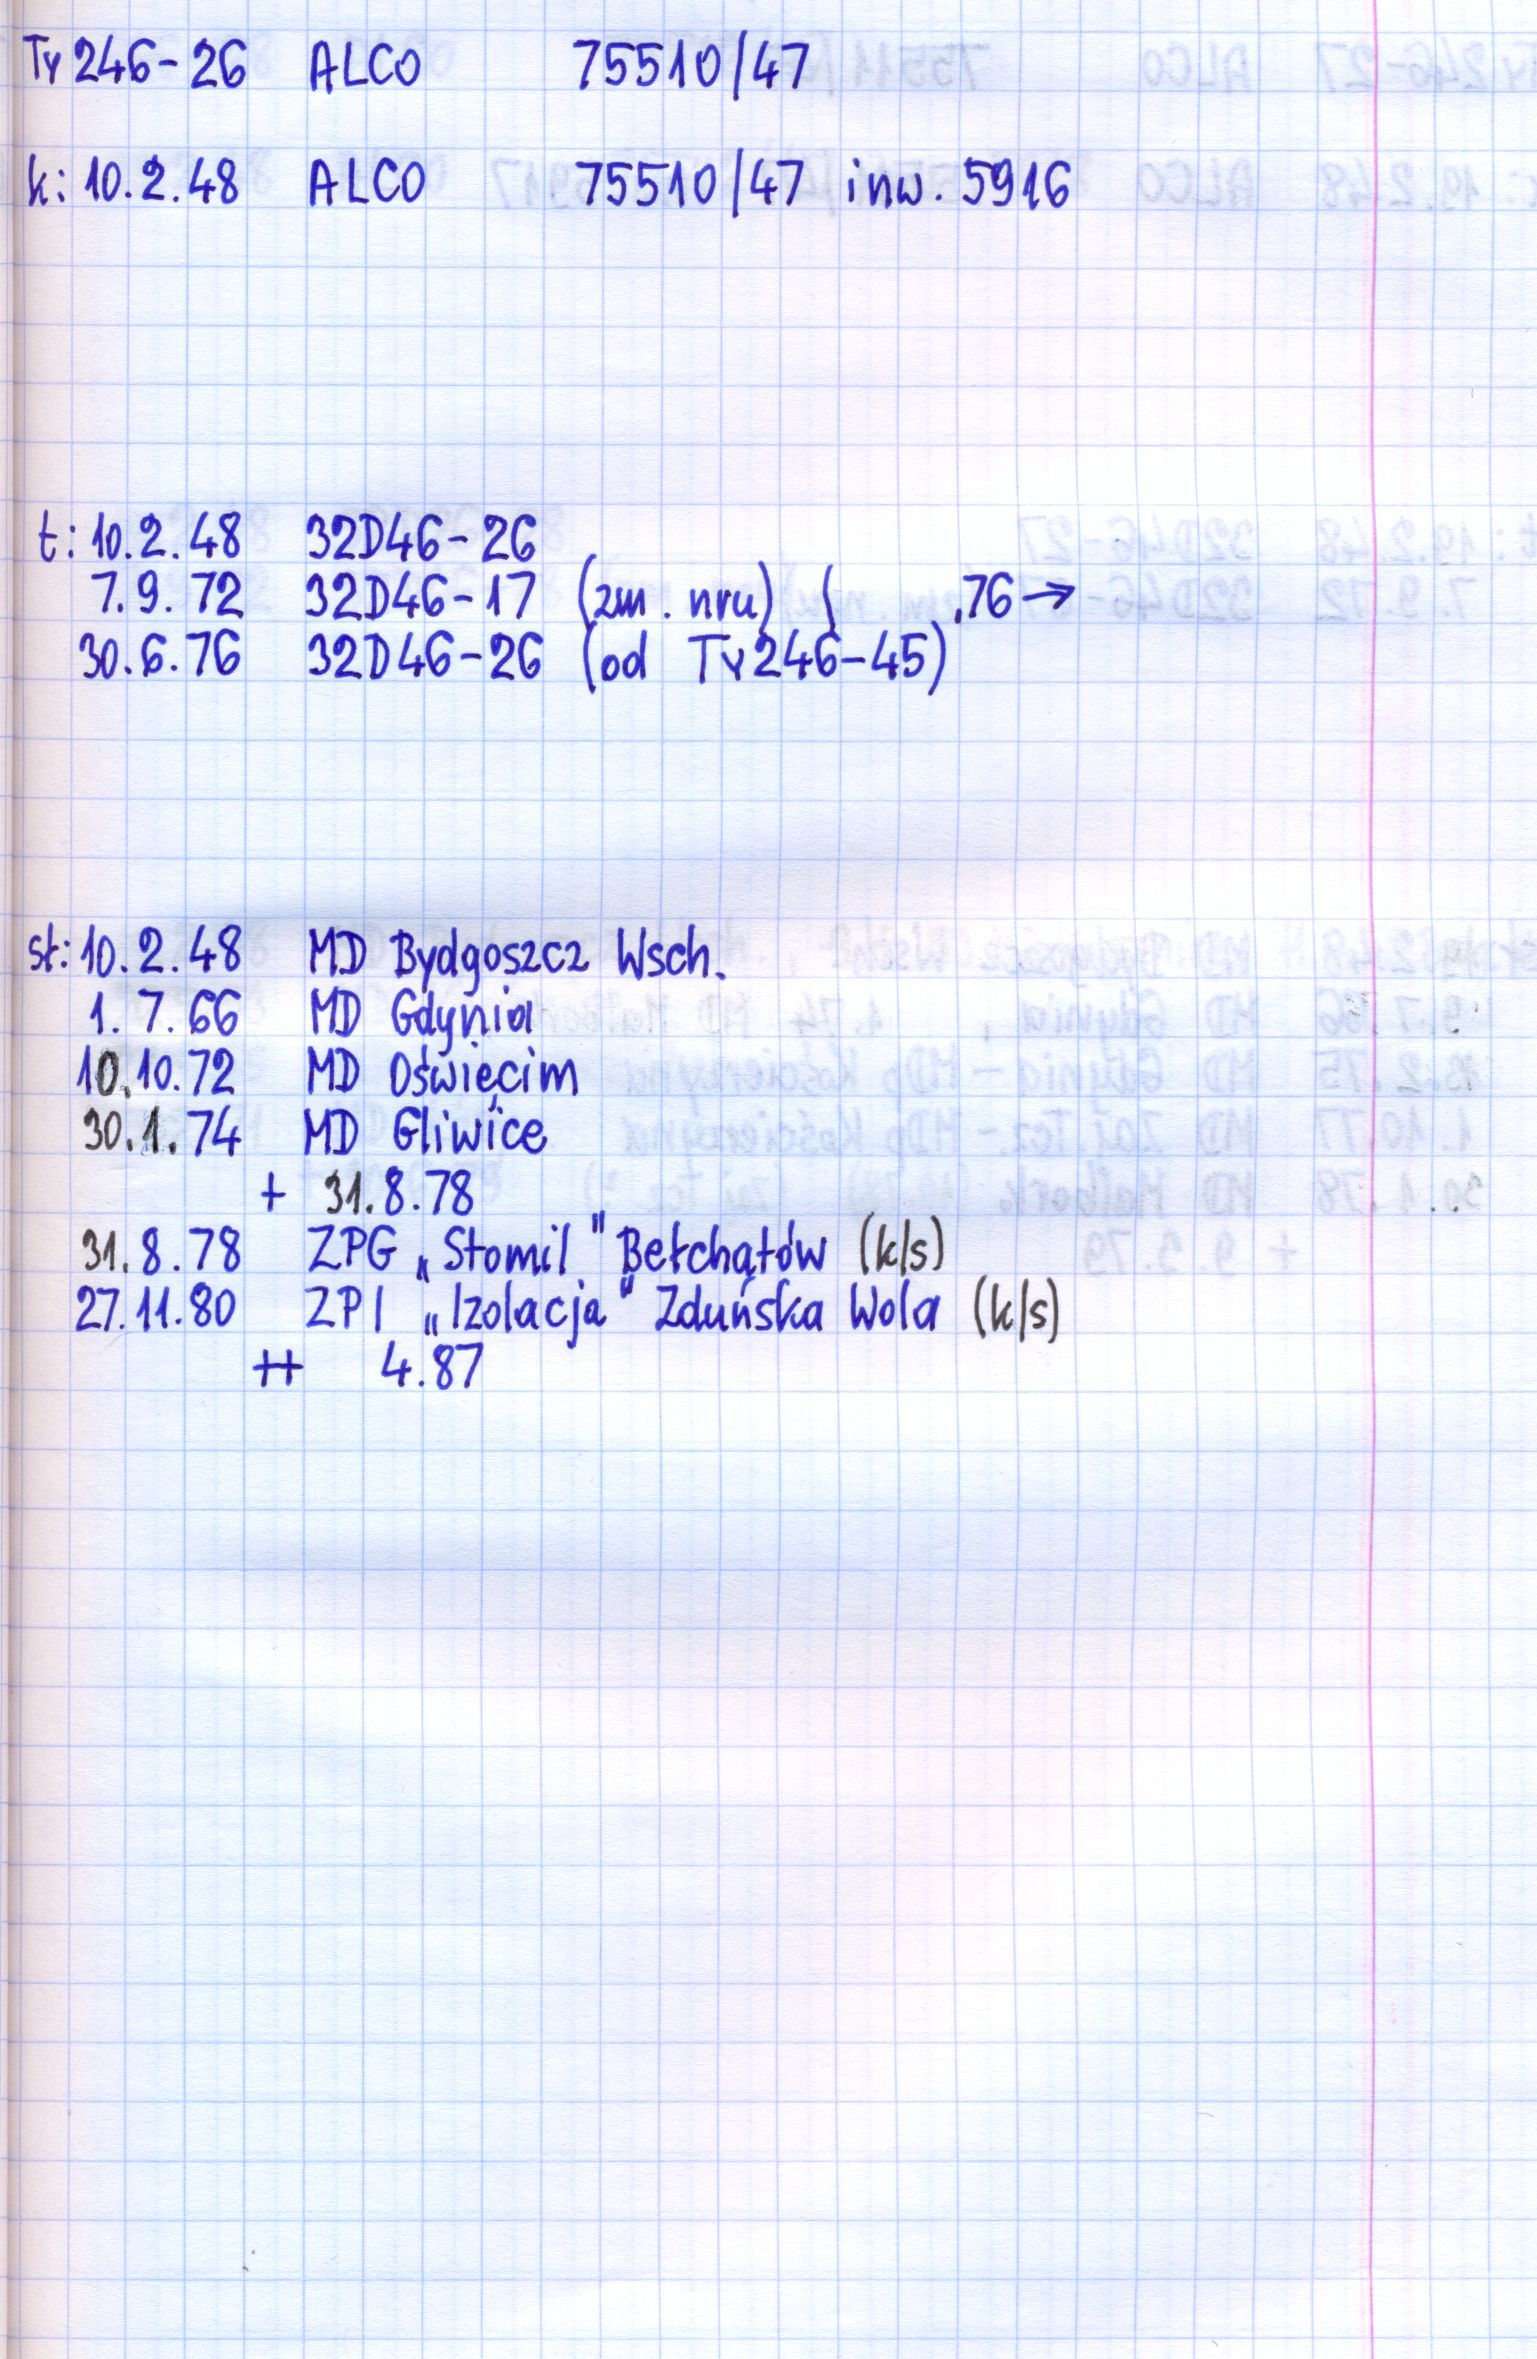 Ty246-26 ALCO 75510/47
k: 10.2.48 ALCO 75510/47 inw. 5916
t: 10.2.48 32D46-26
7.9.72 32D46-17 (zm. nru) ( .76→
30.6.76 32D46-26 (od Ty246-45)
st: 10.2.48 MD Bydgoszcz Wsch.
1.7.66 MD Gdynia
10.10.72 MD Oświęcim
30.1.74 MD Gliwice
+ 31.8.78
31.8.78 ZPG „Stomil" Bełchatów (k/s)
27.11.80 ZPI „Izolacja" Zduńska Wola (k/s)
++ 4.87